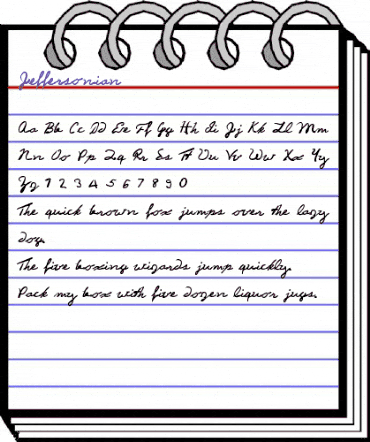 Jeffersonian
Aa Bb Cc Dd Ee Ff Gg Hh Ii Jj Kk Ll Mm
Nn Oo Pp Qq Rr Ss Tt Uu Vv Ww Xx Yy
Zz 1 2 3 4 5 6 7 8 9 0
The quick brown fox jumps over the lazy
dog.
The five boxing wizards jump quickly.
Pack my box with five dozen liquor jugs.